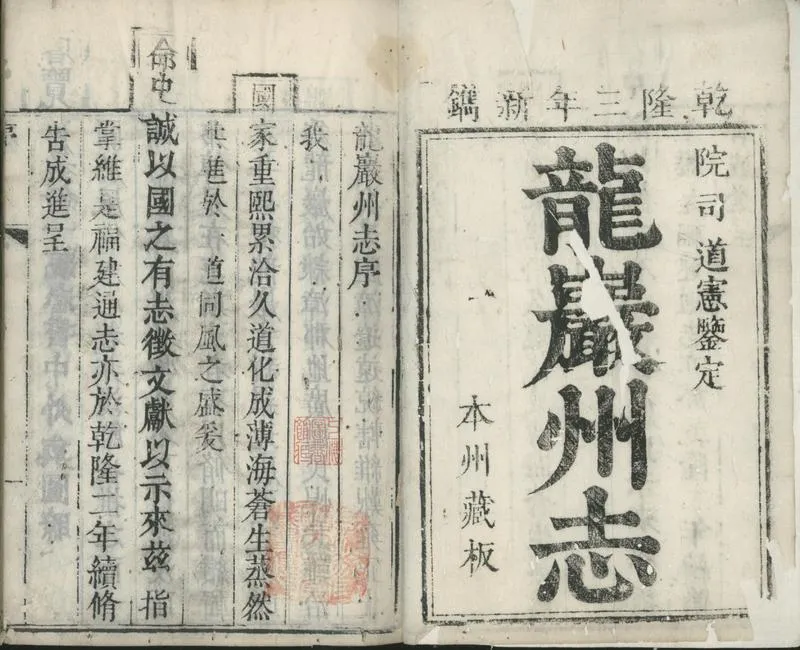 乾隆三年新鐫
院司道憲鑒定
龍巖州志
本州藏板
龍巖州志序
我
國家重熙累洽久道化成薄海蒼生蒸然
共進於一道同風之盛爰
命史誠以國之有志徵文獻以示來茲指
掌維是福建通志亦於乾隆二年續脩
告成進呈